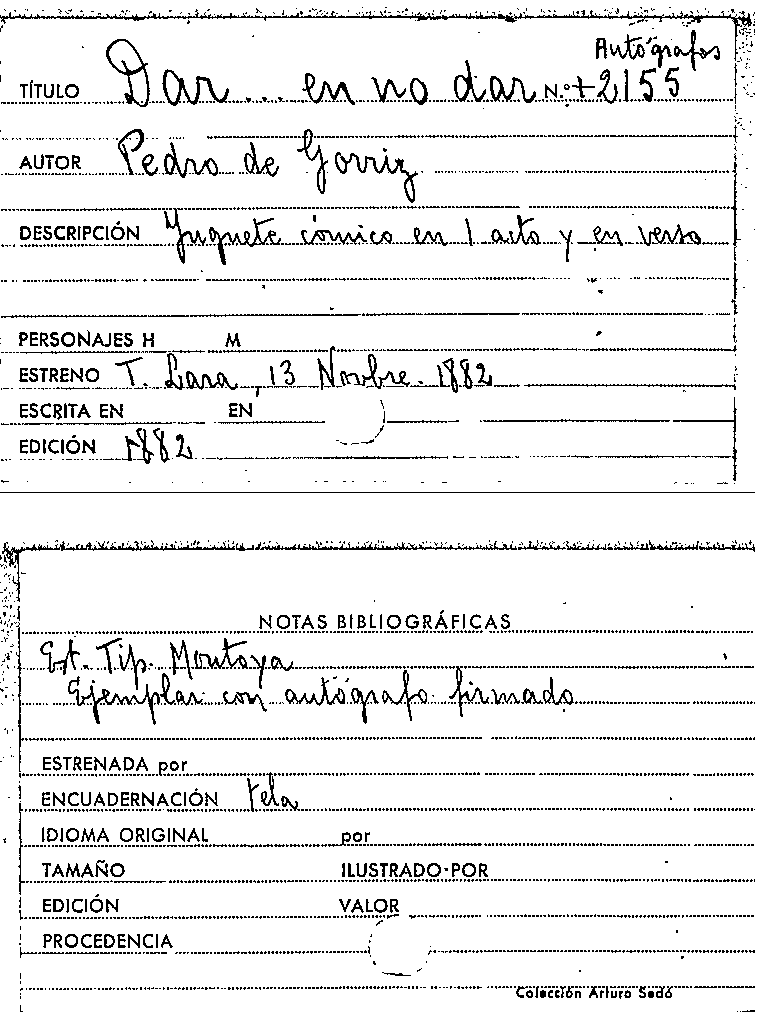 Autógrafos
TÍTULO Dar... en no dar N.º +2155
AUTOR Pedro de Gorriz
DESCRIPCIÓN Juguete cómico en 1 acto y en verso
PERSONAJES H M
ESTRENO T. Lara, 13 Novbre. 1882
ESCRITA EN EN
EDICIÓN 1882
NOTAS BIBLIOGRÁFICAS
Est. Tip. Montoya
Ejemplar con autógrafo firmado
ESTRENADA por
ENCUADERNACIÓN tela
IDIOMA ORIGINAL por
TAMAÑO ILUSTRADO-POR
EDICIÓN VALOR
PROCEDENCIA
Colección Arturo Sedó